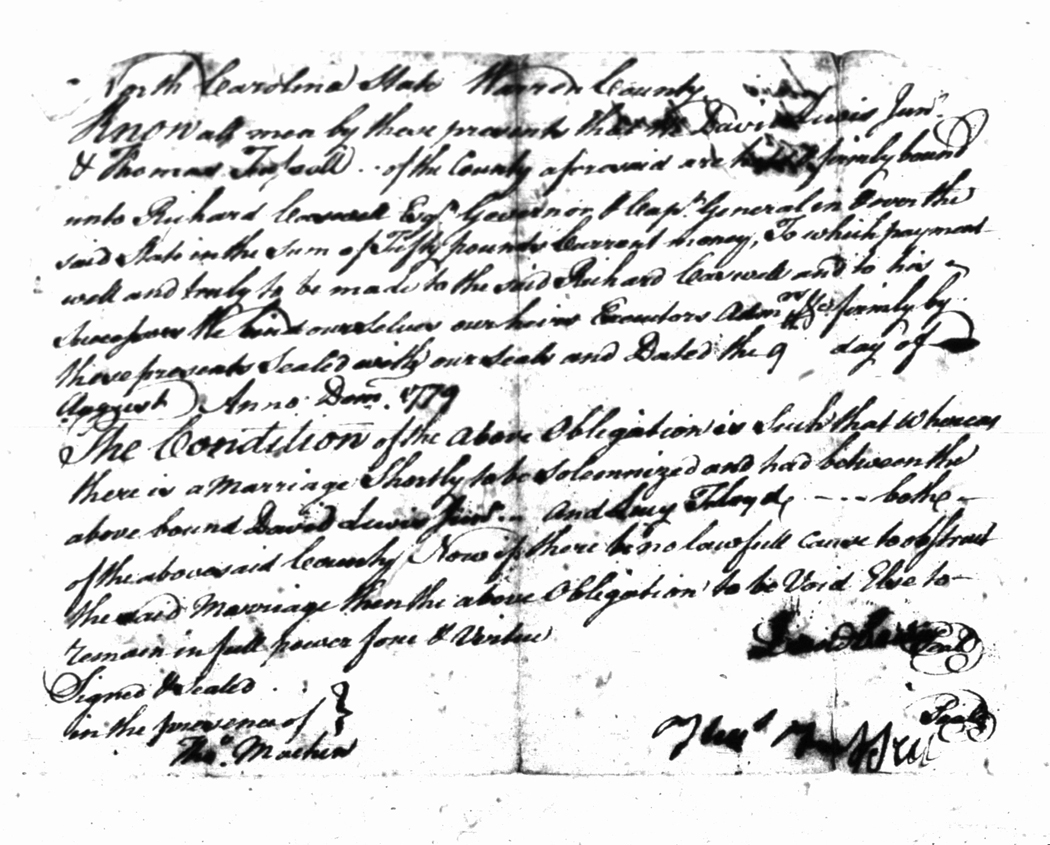 North Carolina State Warren County
Know all men by these presents that we David Lewis Junr.
& Thomas Trussell .. of the County aforesaid are held & firmly bound
unto Richard Caswell Esqr. Governor & Capt. General in & over the
said State in the sum of Fifty pounds Current money, To which payment
well and truly to be made to the said Richard Caswell and to his
Successors We bind ourselves our heirs Executors Admrs. &c firmly by
these presents Sealed with our Seals and Dated the 9 day of
August Anno Dom. 1779
The Condition of the above Obligation is Such that whereas
there is a Marriage Shortly to be Solemnized and had between the
above bound David Lewis Junr. - and Lucy Floyd, - - - - bothe -
of the abovesaid County Now if there be no lawfull cause to obstruct
the said Marriage then the above Obligation to be Void Else to -
remain in full power force & Virtue
David Lewis Seal
Signed & Sealed
in the presence of
Seal
Thos. Machen